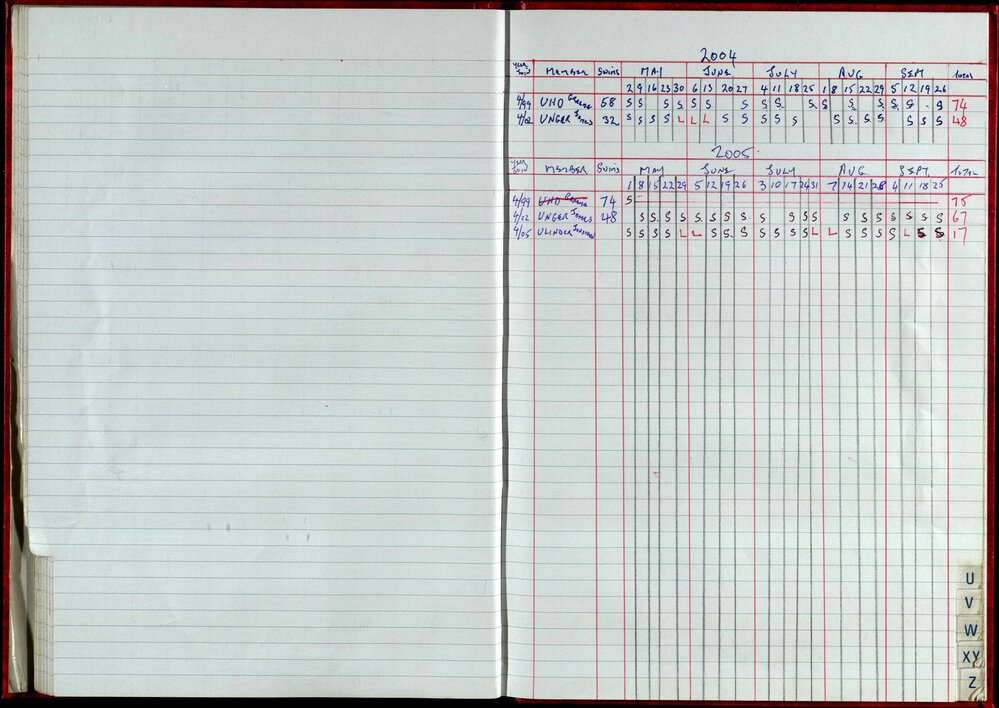 2004
MEMBER Swims MAY JUNE JULY AUG SEPT TOTAL
2 9 16 23 30 6 13 20 27 4 11 18 25 1 8 15 22 29 5 12 19 26
4/99 UHO 58 S S S S S S S S S S S S S S S 74
4/02 UNGER James 32 S S S S L L L S S S S S S S S S S S S 48
2005
MEMBER Swims MAY JUNE JULY AUG. SEPT. TOTAL
1 8 15 22 29 5 12 19 26 3 10 17 24 31 7 14 21 28 4 11 18 25
4/99 UHO 74 S 75
4/02 UNGER James 48 S S S S S S S S S S S S S S S S S S S 67
4/05 ULINDER S S S S L L S S S S S S S L L S S S S L S S 17
U
V
W
XY
Z